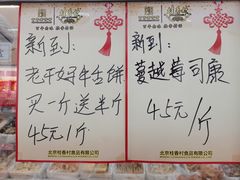 新到:
牛舌饼
买一斤送半斤
45元1斤
北京桂香村食品有限公司
新到:
蔓越莓司康
45元/斤
北京桂香村食品有限公司